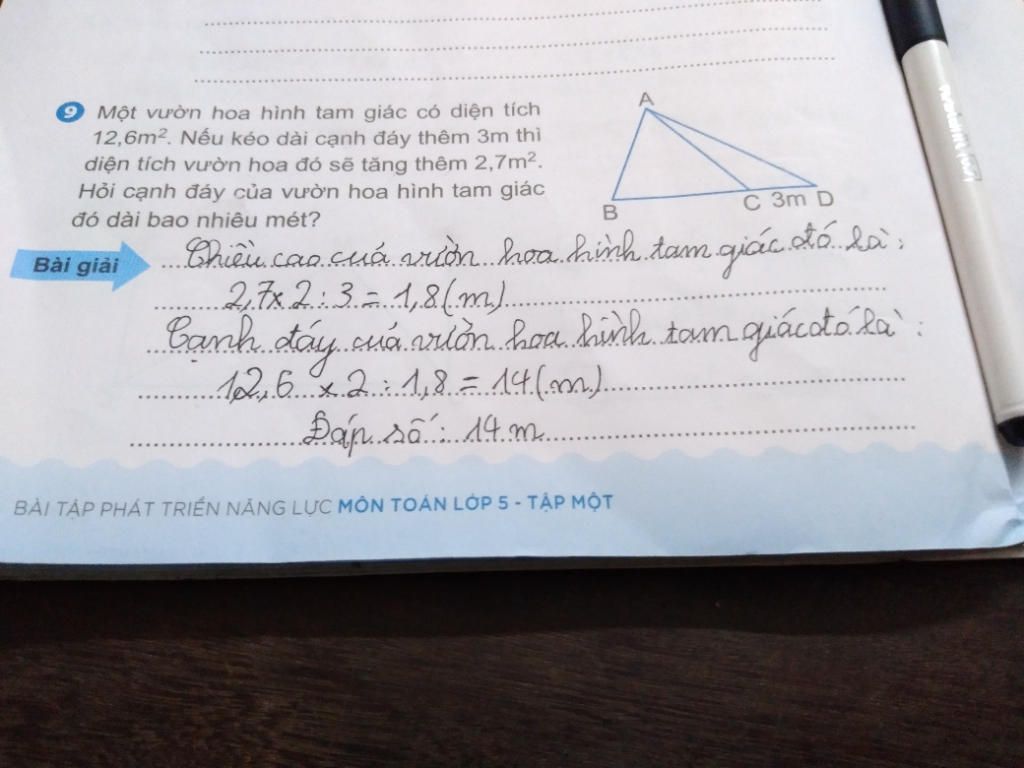 9 Một vườn hoa hình tam giác có diện tích
12,6m². Nếu kéo dài cạnh đáy thêm 3m thì
diện tích vườn hoa đó sẽ tăng thêm 2,7m².
Hỏi cạnh đáy của vườn hoa hình tam giác
đó dài bao nhiêu mét?
A
B
C 3m D
Bài giải
Chiều cao cuả vườn hoa hình tam giác đó là:
2,7 x 2 : 3 = 1,8 (m)
Cạnh đáy cuả vườn hoa hình tam giác đó là:
12,6 x 2 : 1,8 = 14 (m)
Đáp số: 14 m
BÀI TẬP PHÁT TRIỂN NĂNG LỰC MÔN TOÁN LỚP 5 - TẬP MỘT